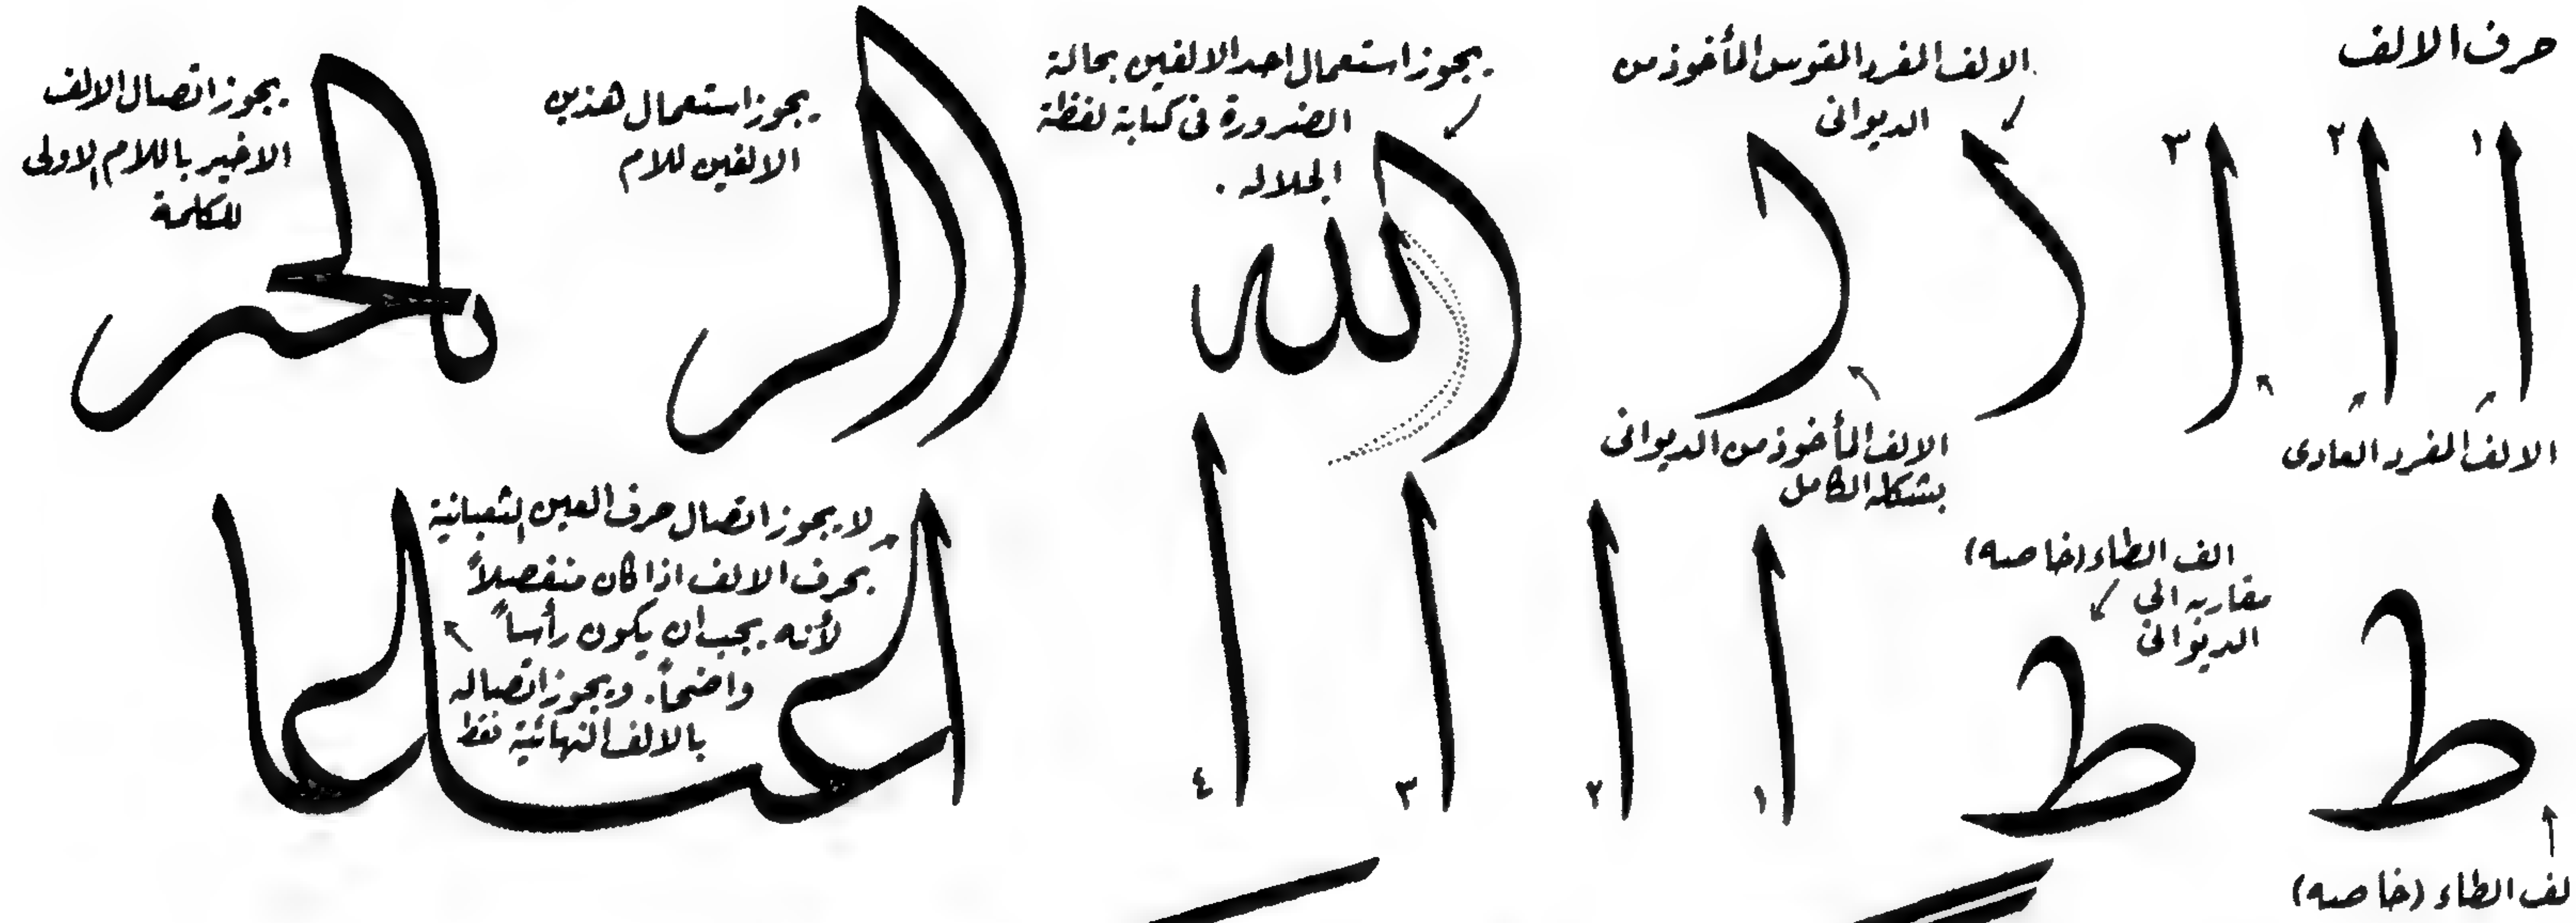 حرف الالف
١ ٢ ٣
الالف المفرد العادى
الالف المفرد المقوس المأخوذ من
الديوانى
الالف المأخوذ من الديوانى
بشكله الكامل
يجوز استعمال احد الالفين بحالة
الضرورة فى كتابة لفظة
الجلاله .
لله
يجوز استعمال هذين
الالفين للام
يجوز اتصال الالف
الاخير باللام الاولى
للكلمة
ط
لف الطاء (خاصه)
ط
الف الطاء (خاصه)
مقاربه الى
الديوانى
١ ٢ ٣ ٤
لا يجوز اتصال حرف العين الثعبانية
بحرف الالف اذا كان منفصلاً
لأنه يجب ان يكون رأساً
واضحاً. ويجوز اتصاله
بالالف النهائية فقط